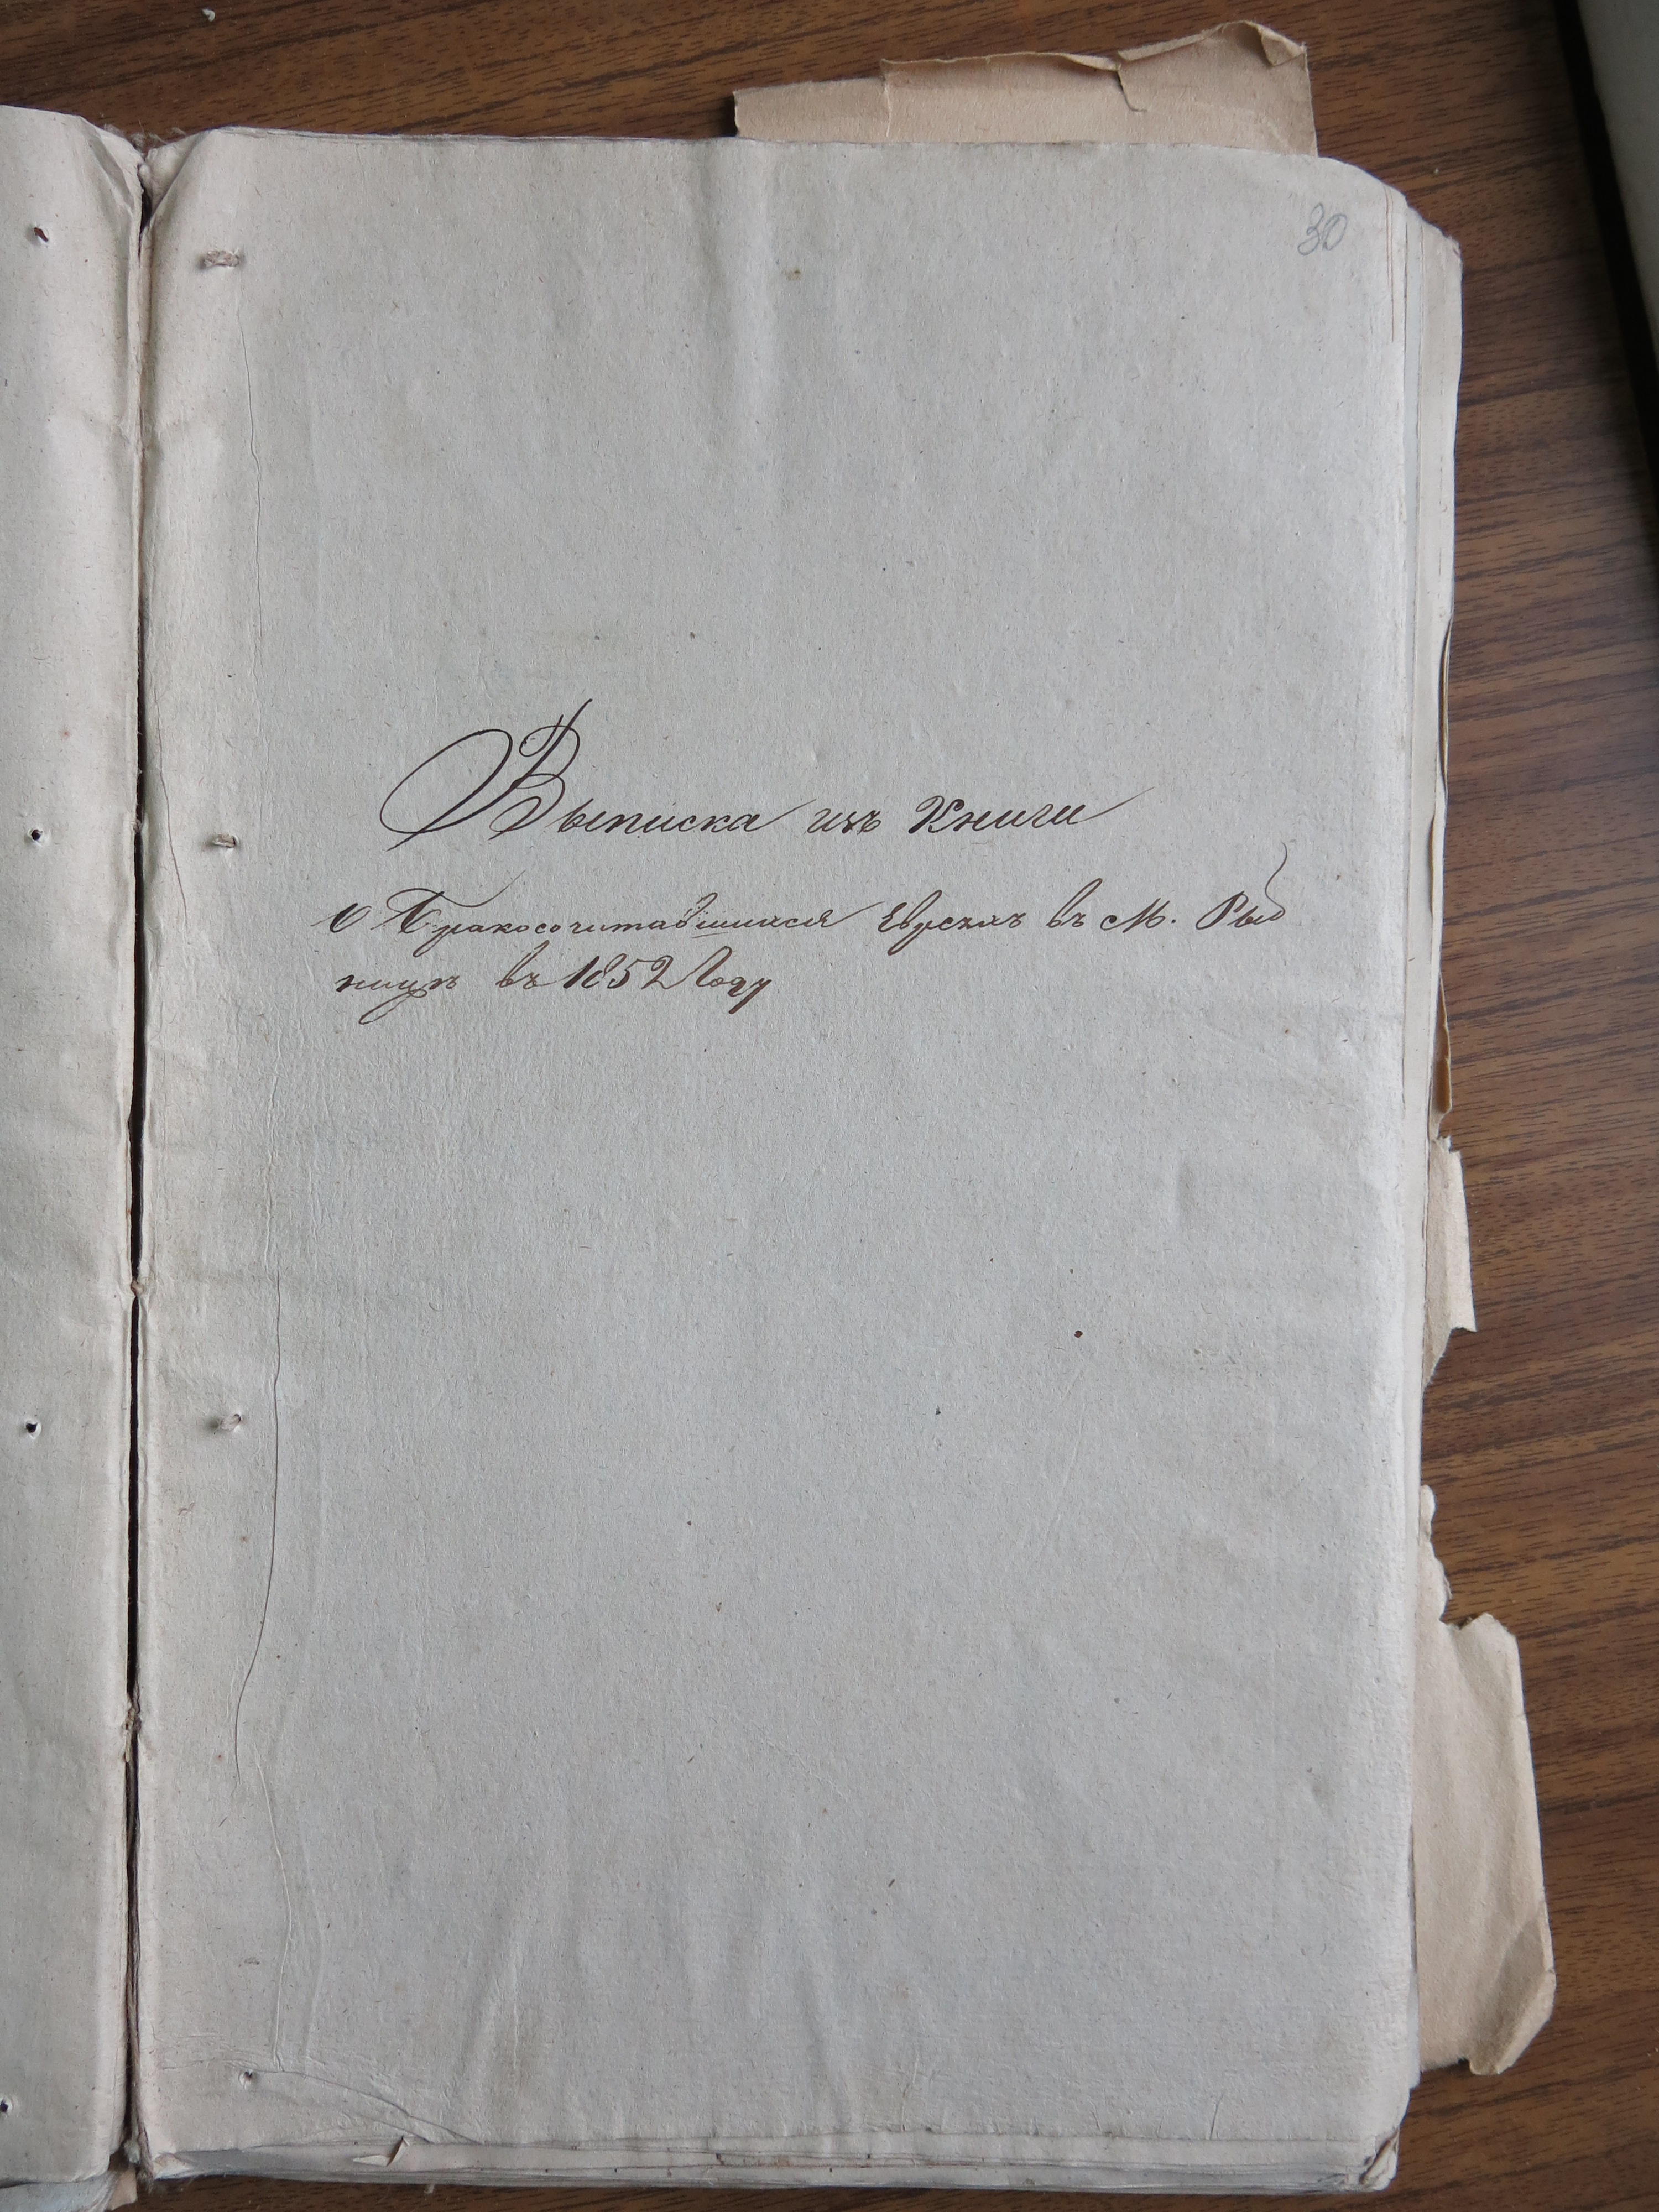 30
Выписка изъ Книги
О Бракосочитавшихся Евреяхъ въ М. Рыб
ницѣ въ 1852 Году